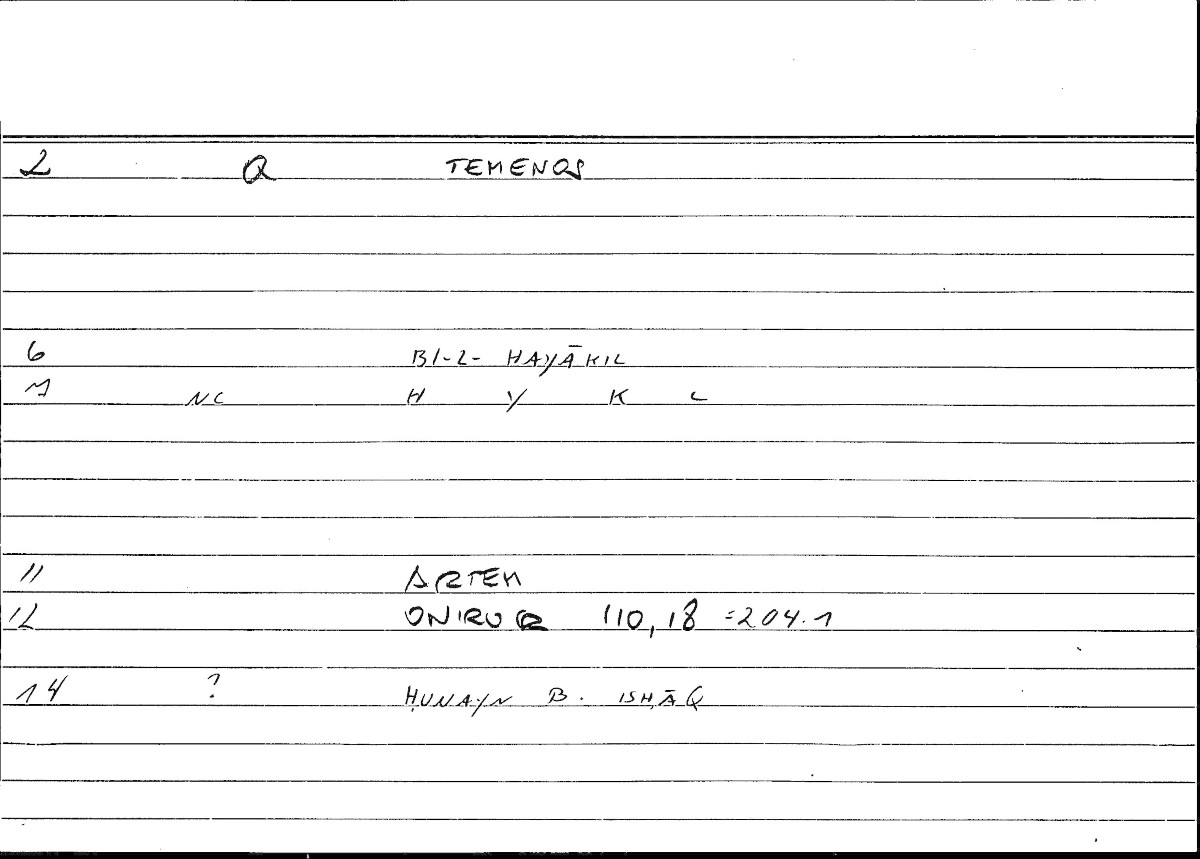 2 Q TEMENOS
6 BI-L- HAYĀKIL
7 NC H Y K L
11 ARTEM
12 ONIROCR 110,18 =204.1
14 ? ḤUNAYN B. ISḤĀQ